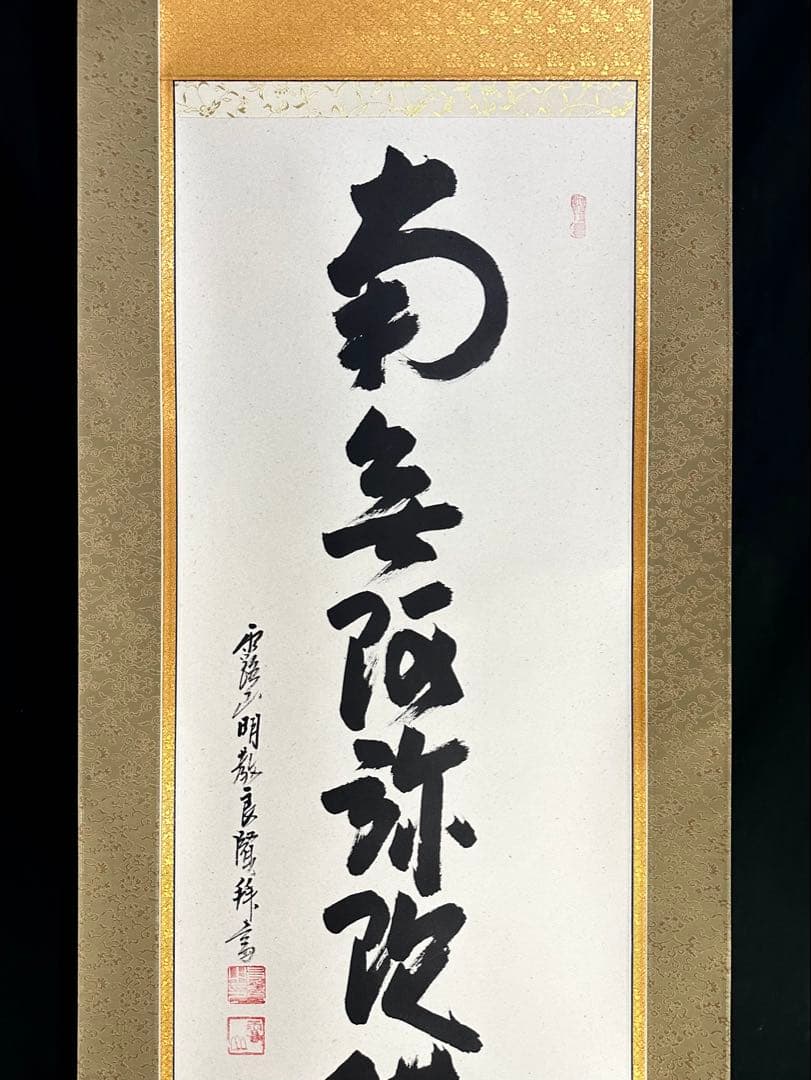 南無阿弥陀佛
露山明教良賢拜書